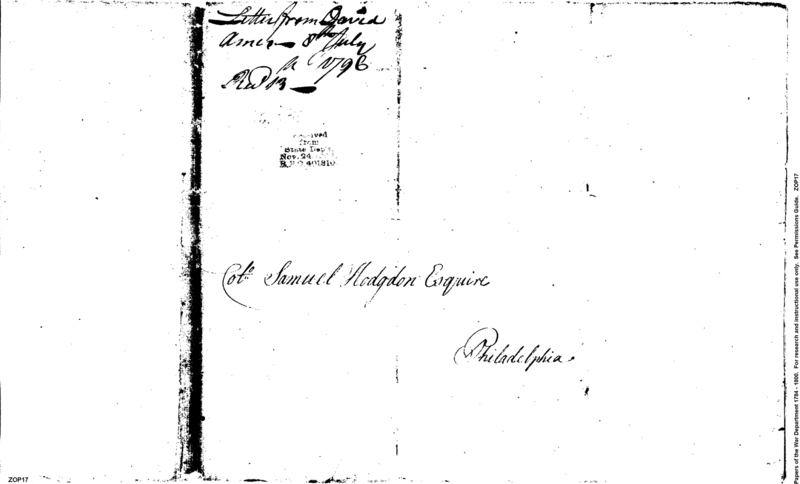 Letter from David
Ames 8th July
1796
Recd 13
Received
from
State Dep't.
Nov. 24
R. & P. 401810
Colo. Samuel Hodgdon Esquire
Philadelphia.
Papers of the War Department 1784 - 1800. For research and instructional use only. See Permissions Guide. ZOP17
ZOP17